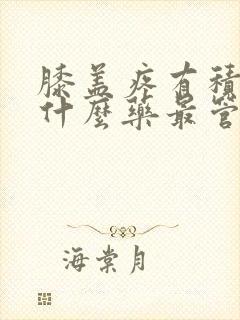 膝盖疼有積
什麼藥最管
海棠月